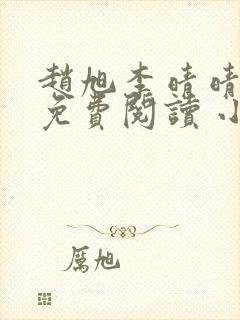 趙旭李晴晴
免費閱讀小
厲旭